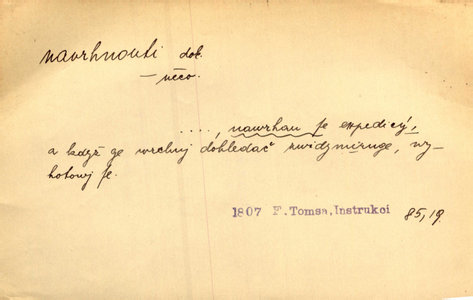 navrhnouti dok.
— něco.
...., nawrhau se expedicý,
a když ge wrchnj dohledač zwidymiruge, wy-
hotowj se.
1807 F. Tomsa, Instrukcí 85, 19.